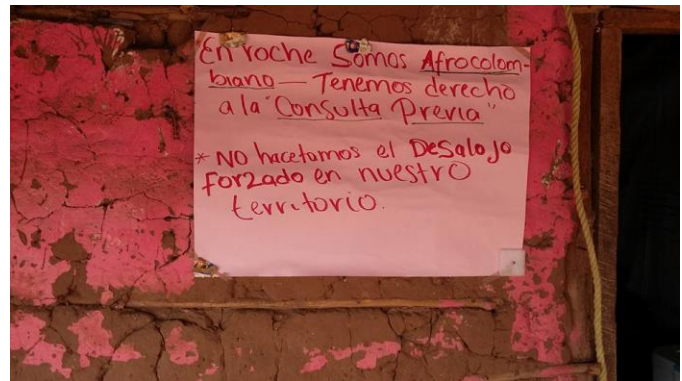 En roche Somos Afrocolom-
biano — Tenemos derecho
a la "Consulta Previa"
* NO hacetamos el DeSalojo
forzado en nuestro
territorio.